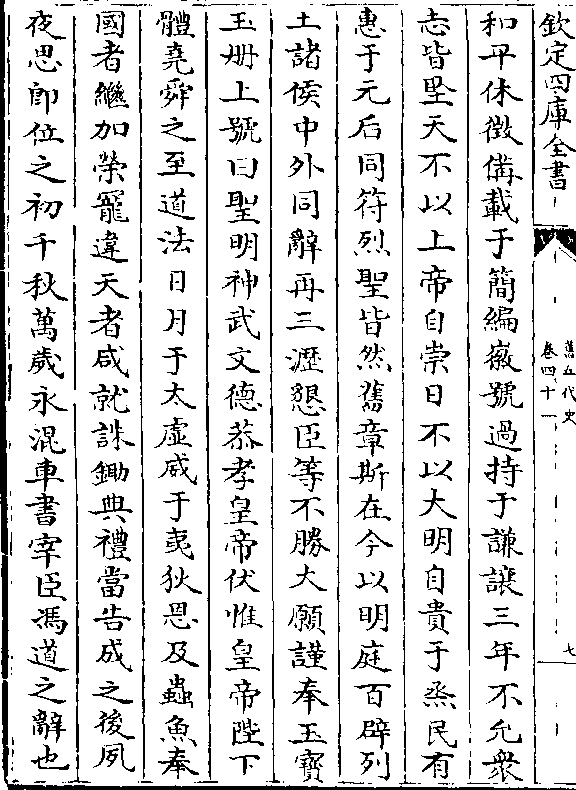 欽定四庫全書
舊五代史
卷四十一
七
和平休徵備載于簡編徽號過持于謙讓三年不允衆
志皆堅天不以上帝自崇日不以大明自貴于烝民有
惠于元后同符烈聖皆然舊章斯在今以明庭百辟列
土諸侯中外同辭再三瀝懇臣等不勝大願謹奉玉寳
玉册上號曰聖明神武文德恭孝皇帝伏惟皇帝陛下
體堯舜之至道法日月于太虛威于夷狄恩及蟲魚奉
國者繼加榮寵違天者咸就誅鋤典禮當告成之後夙
夜思即位之初千秋萬歲永混車書宰臣馮道之辭也